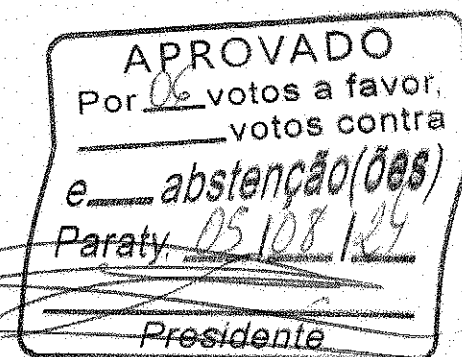 APROVADO
Por 06 votos a favor,
votos contra
e abstenção(ões)
Paraty, 05/08/24
Presidente